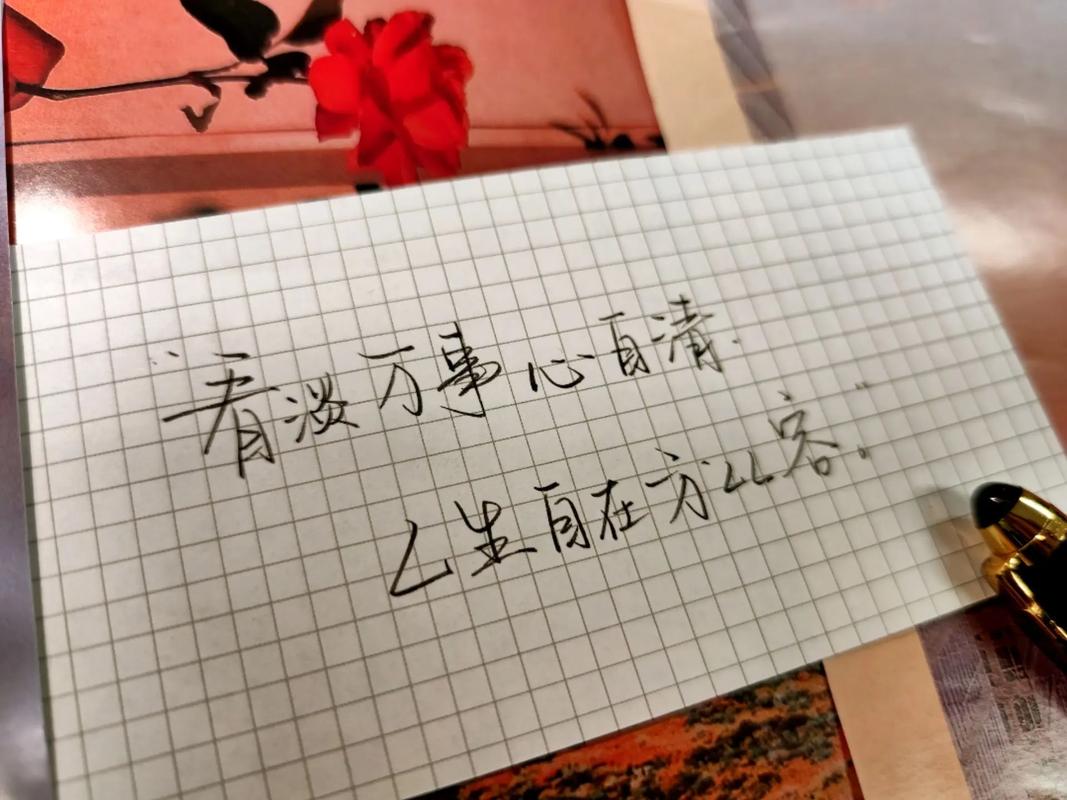 "看淡万事心自清.
人生自在方从容."